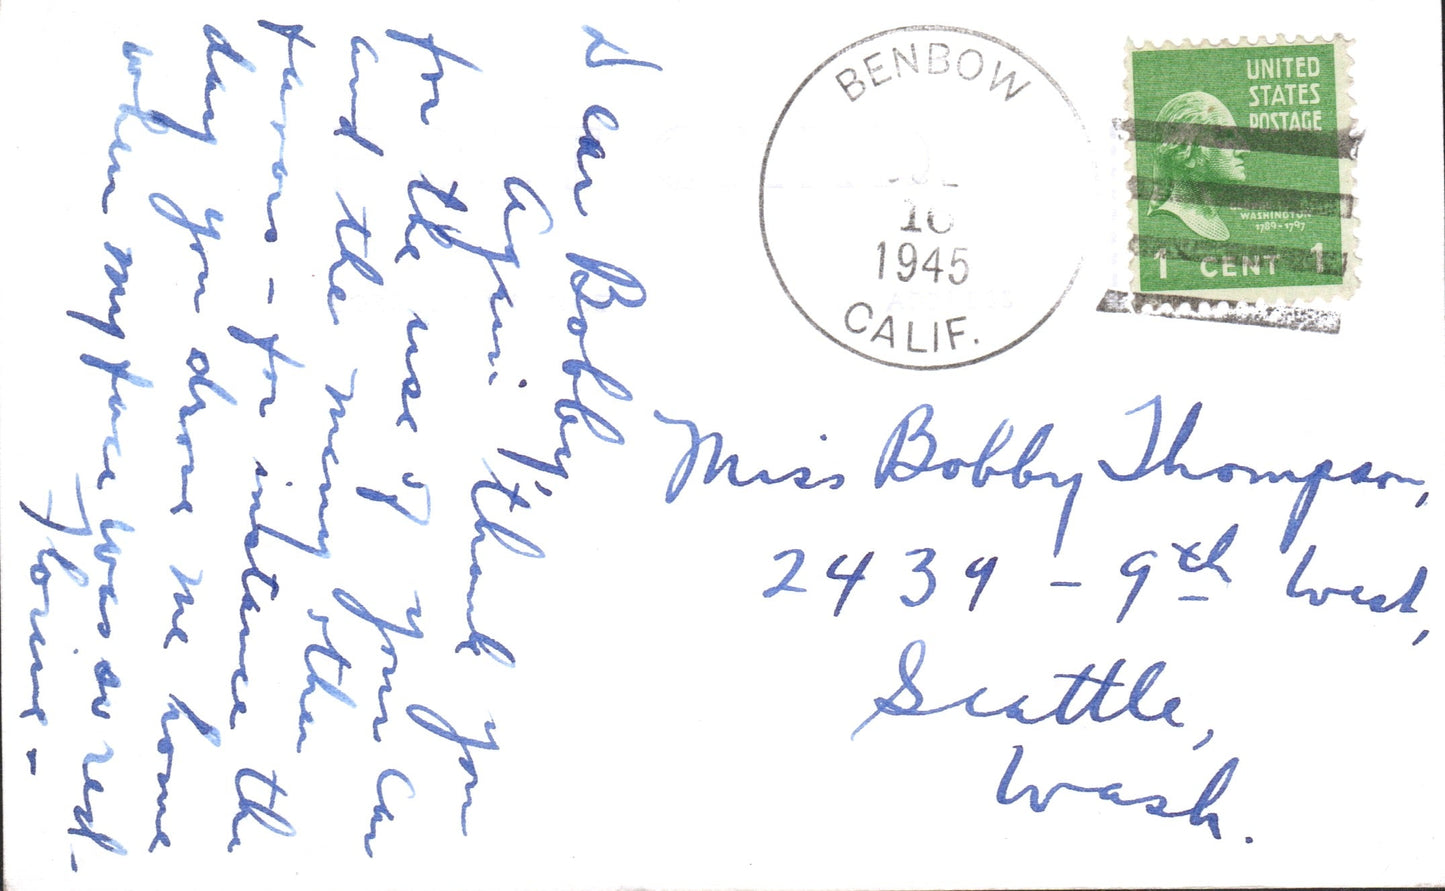 Dear Bobby,
Again, thank you
for the use of your car
and the many other
favors - for instance the
day you drove me home
when my face was so red -
Florine -
BENBOW
16
1945
CALIF.
UNITED
STATES
POSTAGE
WASHINGTON
1789-1797
1 CENT 1
Miss Bobby Thompson,
2439 - 9th West,
Seattle,
Wash.